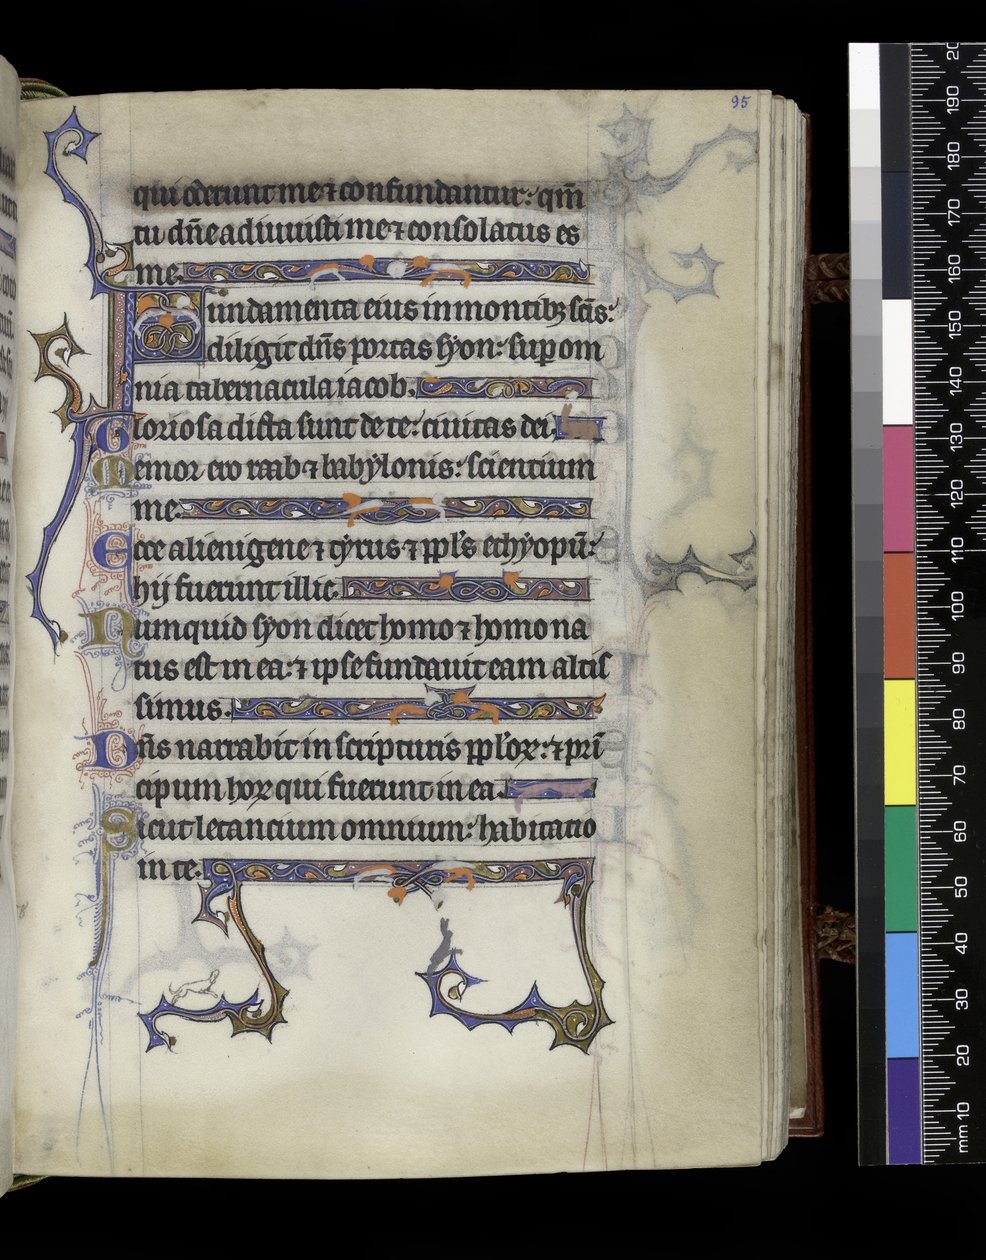 95
qui oderunt me ⁊ confundantur: qm̄
tu dn̄e adiuuisti me ⁊ consolatus es
me.
Fundamenta eius in montibꝫ sc̄is:
diligit dn̄s portas syon: sup om
nia tabernacula iacob.
Gloriosa dicta sunt de te: ciuitas dei.
Memor ero raab ⁊ babylonis: scientium
me.
Ecce alienigene ⁊ tyrus ⁊ ppl's ethyopū:
hij fuerunt illic.
Numquid syon dicet homo ⁊ homo na
tus est in ea: ⁊ ipse fundauit eam altis
simus.
Dn̄s narrabit in scripturis ppl'oꝝ: ⁊ pri
cipum hoꝝ qui fuerunt in ea.
Sicut letancium omnium: habitatio
in te.
mm 10 20 30 40 50 60 70 80 90 100 110 120 130 140 150 160 170 180 190